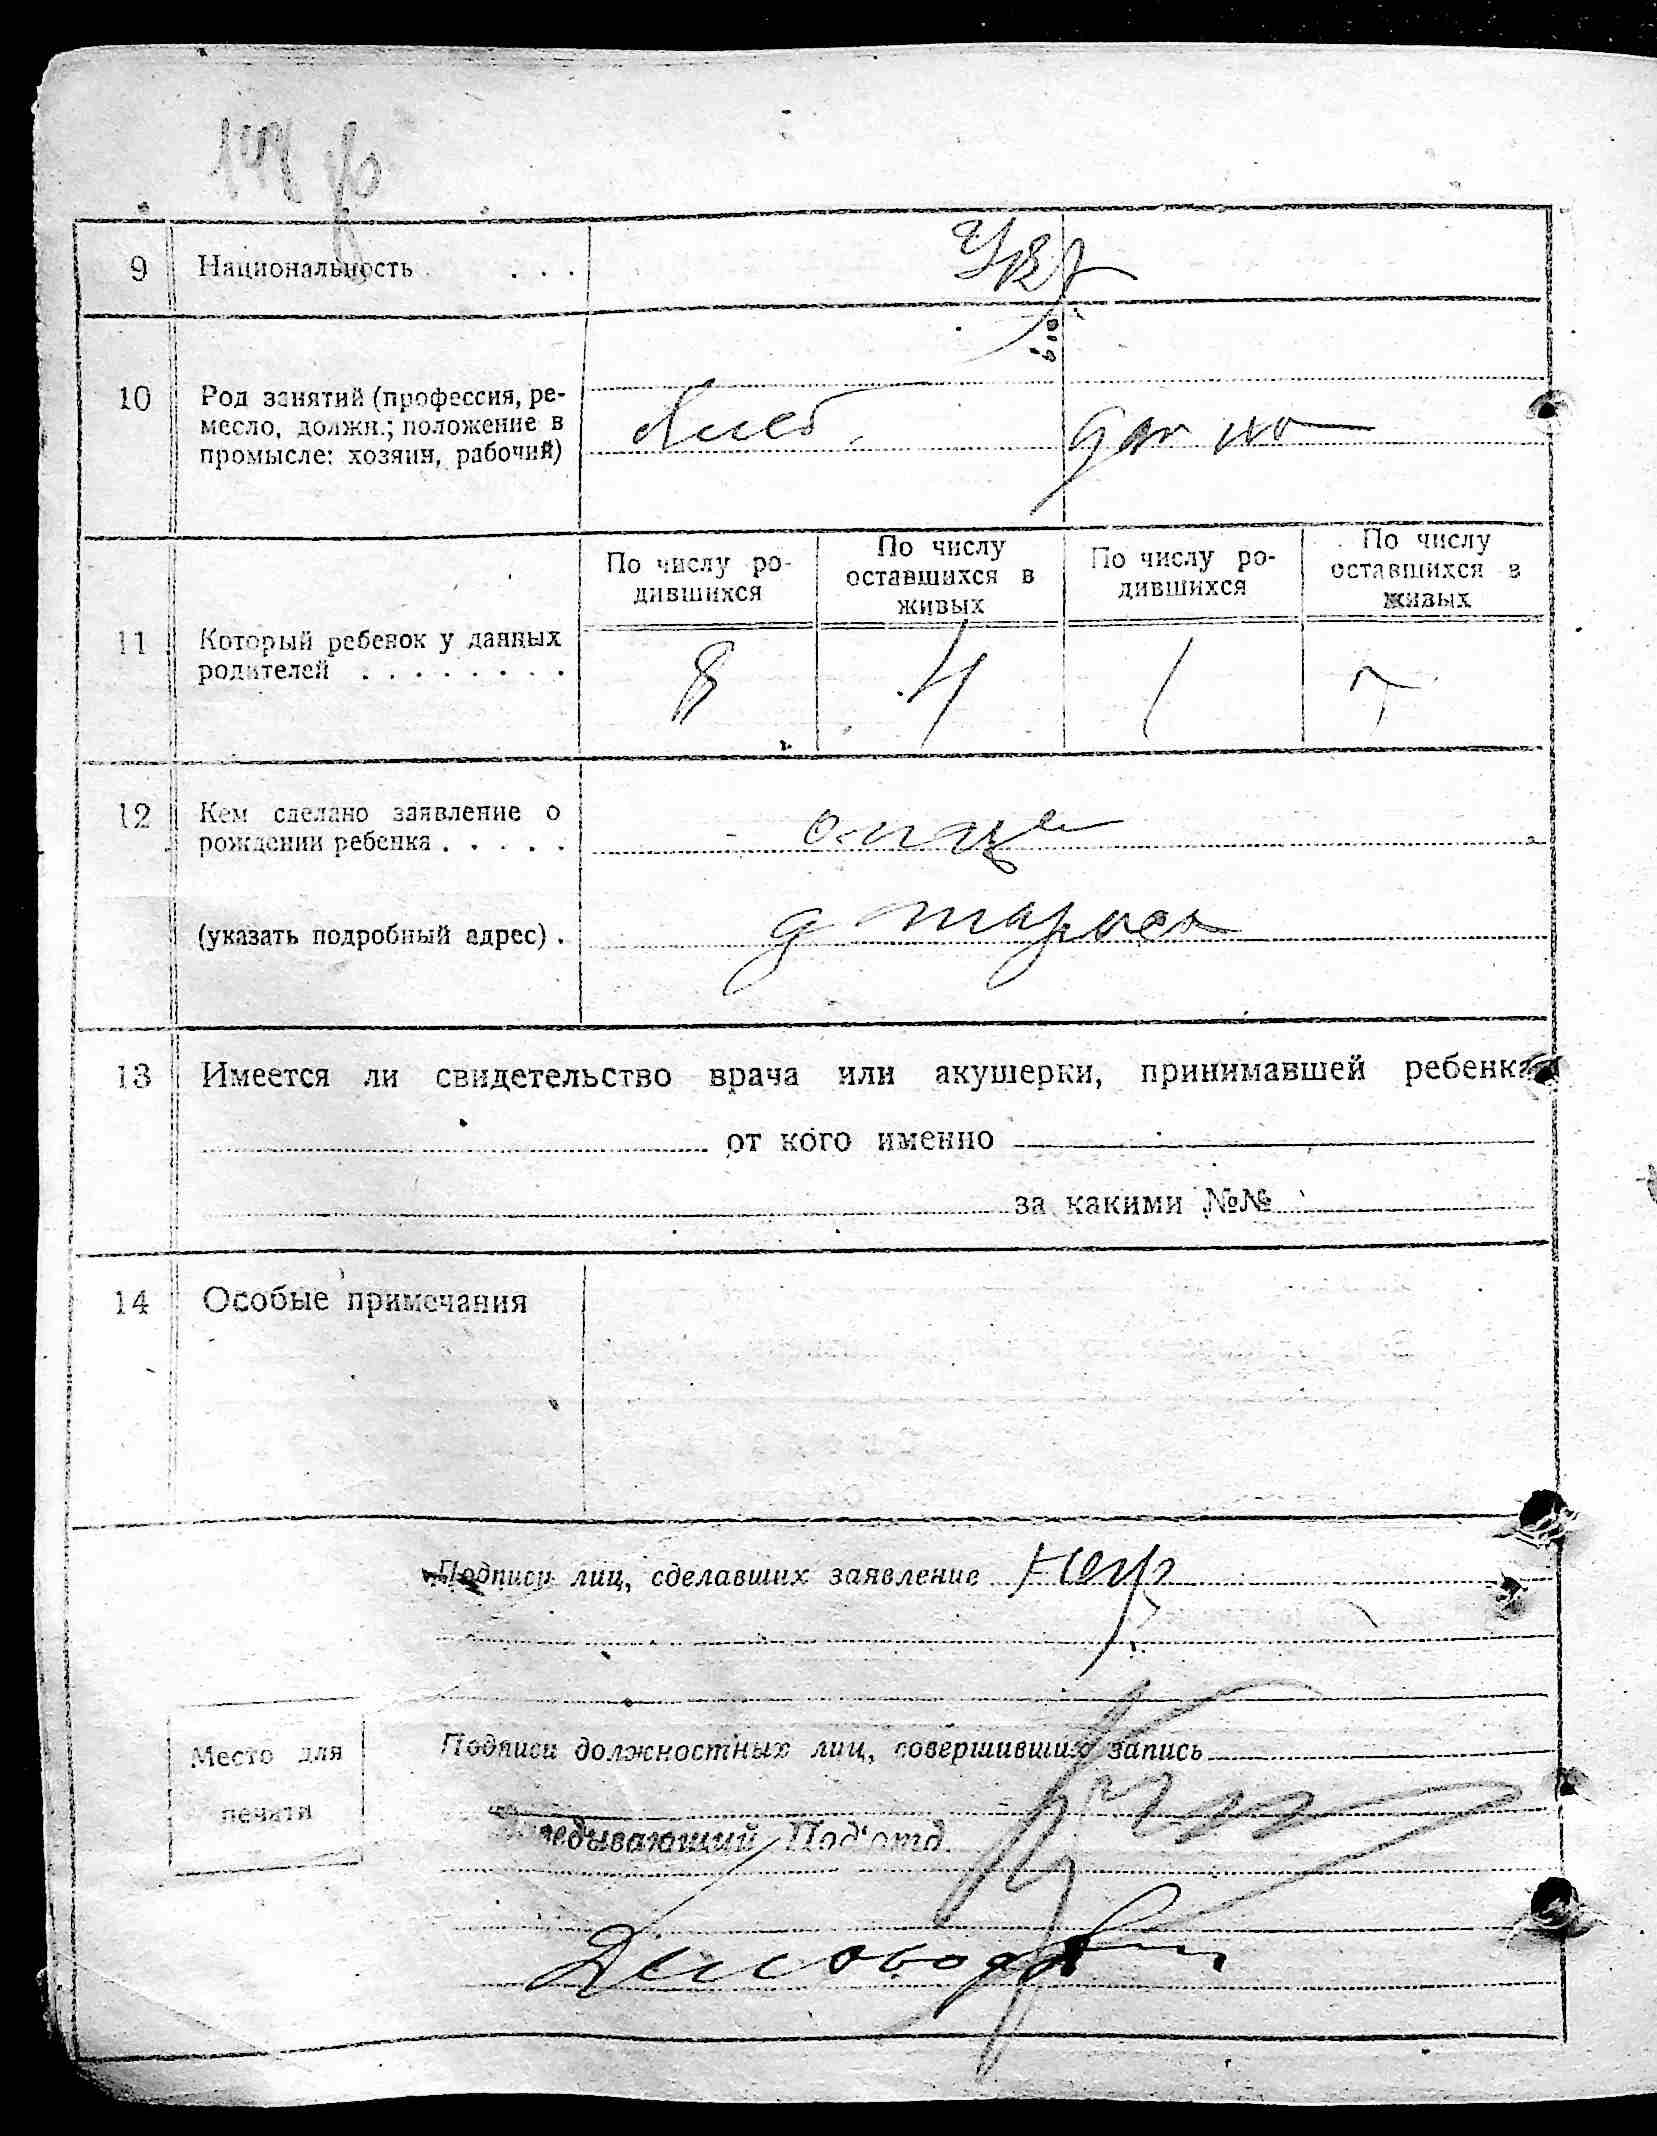 9 Национальность . . . Укр
10 Род занятий (профессия, ре-
месло, должн.; положение в
промысле: хозяин, рабочий)
хлеб. дом хоз
По числу ро-
дившихся
По числу
оставшихся в
живых
По числу ро-
дившихся
По числу
оставшихся в
живых
11 Который ребенок у данных
родителей . . . . . . . .
8 4 1
12 Кем сделано заявление о
рождении ребенка . . . . .
отце
(указать подробный адрес) .
д
13 Имеется ли свидетельство врача или акушерки, принимавшей ребенка
от кого именно
за какими №№
14 Особые примечания
Подписи лиц, сделавших заявление негр
Подписи должностных лиц, совершивших запись
Место для
печати
Заведывающий Под'отд.
Деловод